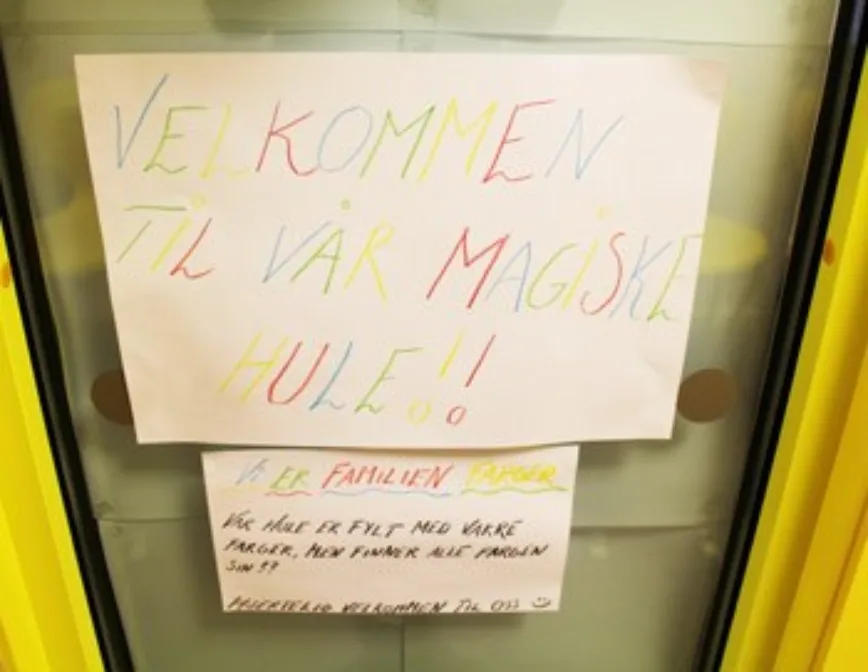 VELKOMMEN
TIL VÅR MAGISKE
HULE!!
VI ER FAMILIEN FARGER
VÅR HULE ER FYLT MED VAKRE
FARGER, MEN FINNER ALLE FARGEN
SIN??
HJERTELIG VELKOMMEN TIL OSS